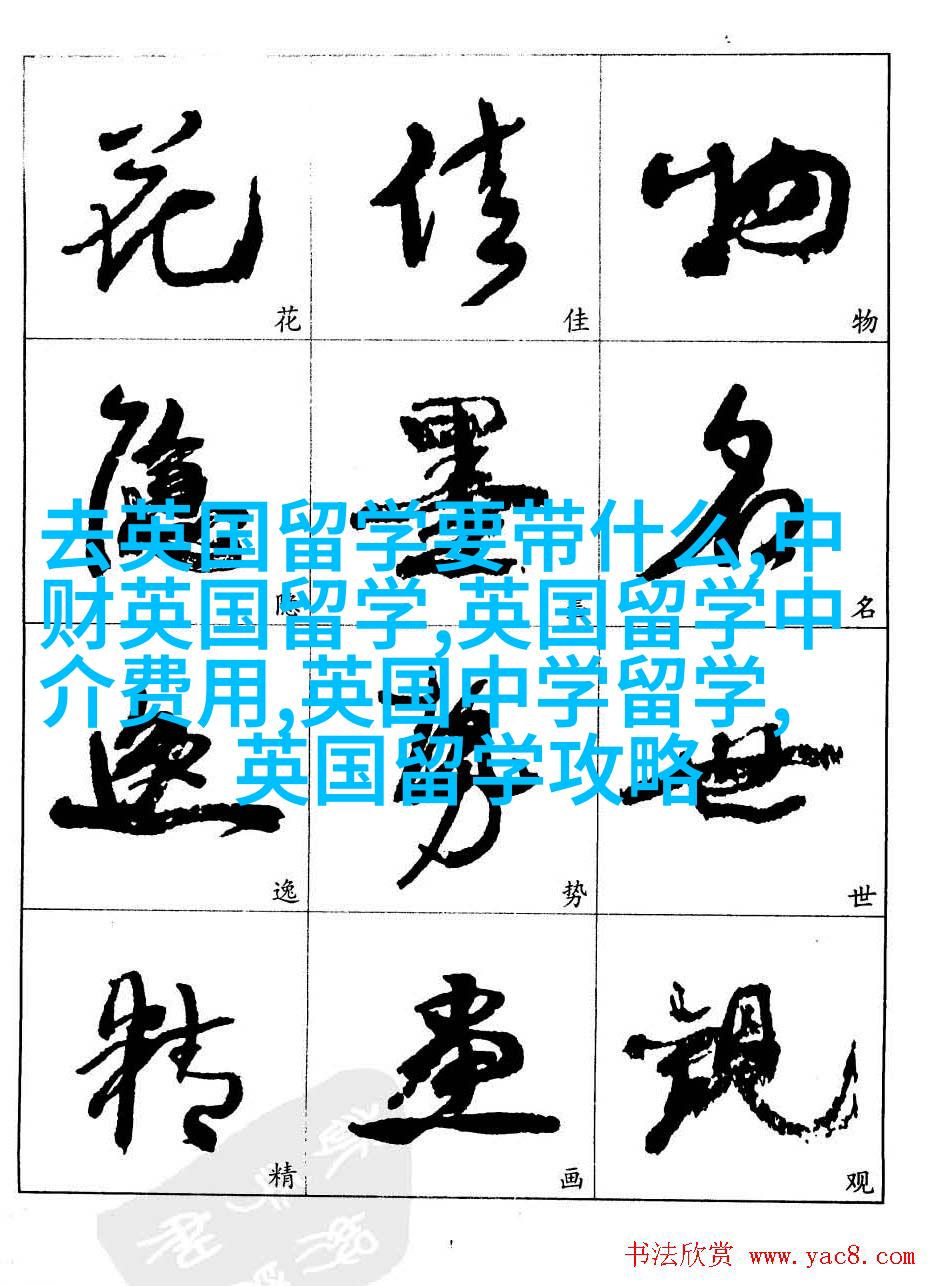 花 佳 物
花 佳 物
隱 墨 名
去英国留学要带什么,中
财英国留学,英国留学中
介费用,英国中学留学,
英国留学攻略
隐 名
逸 勢 世
逸 势 世
精 畫 觀
精 画 观
书法欣赏 www.yac8.com